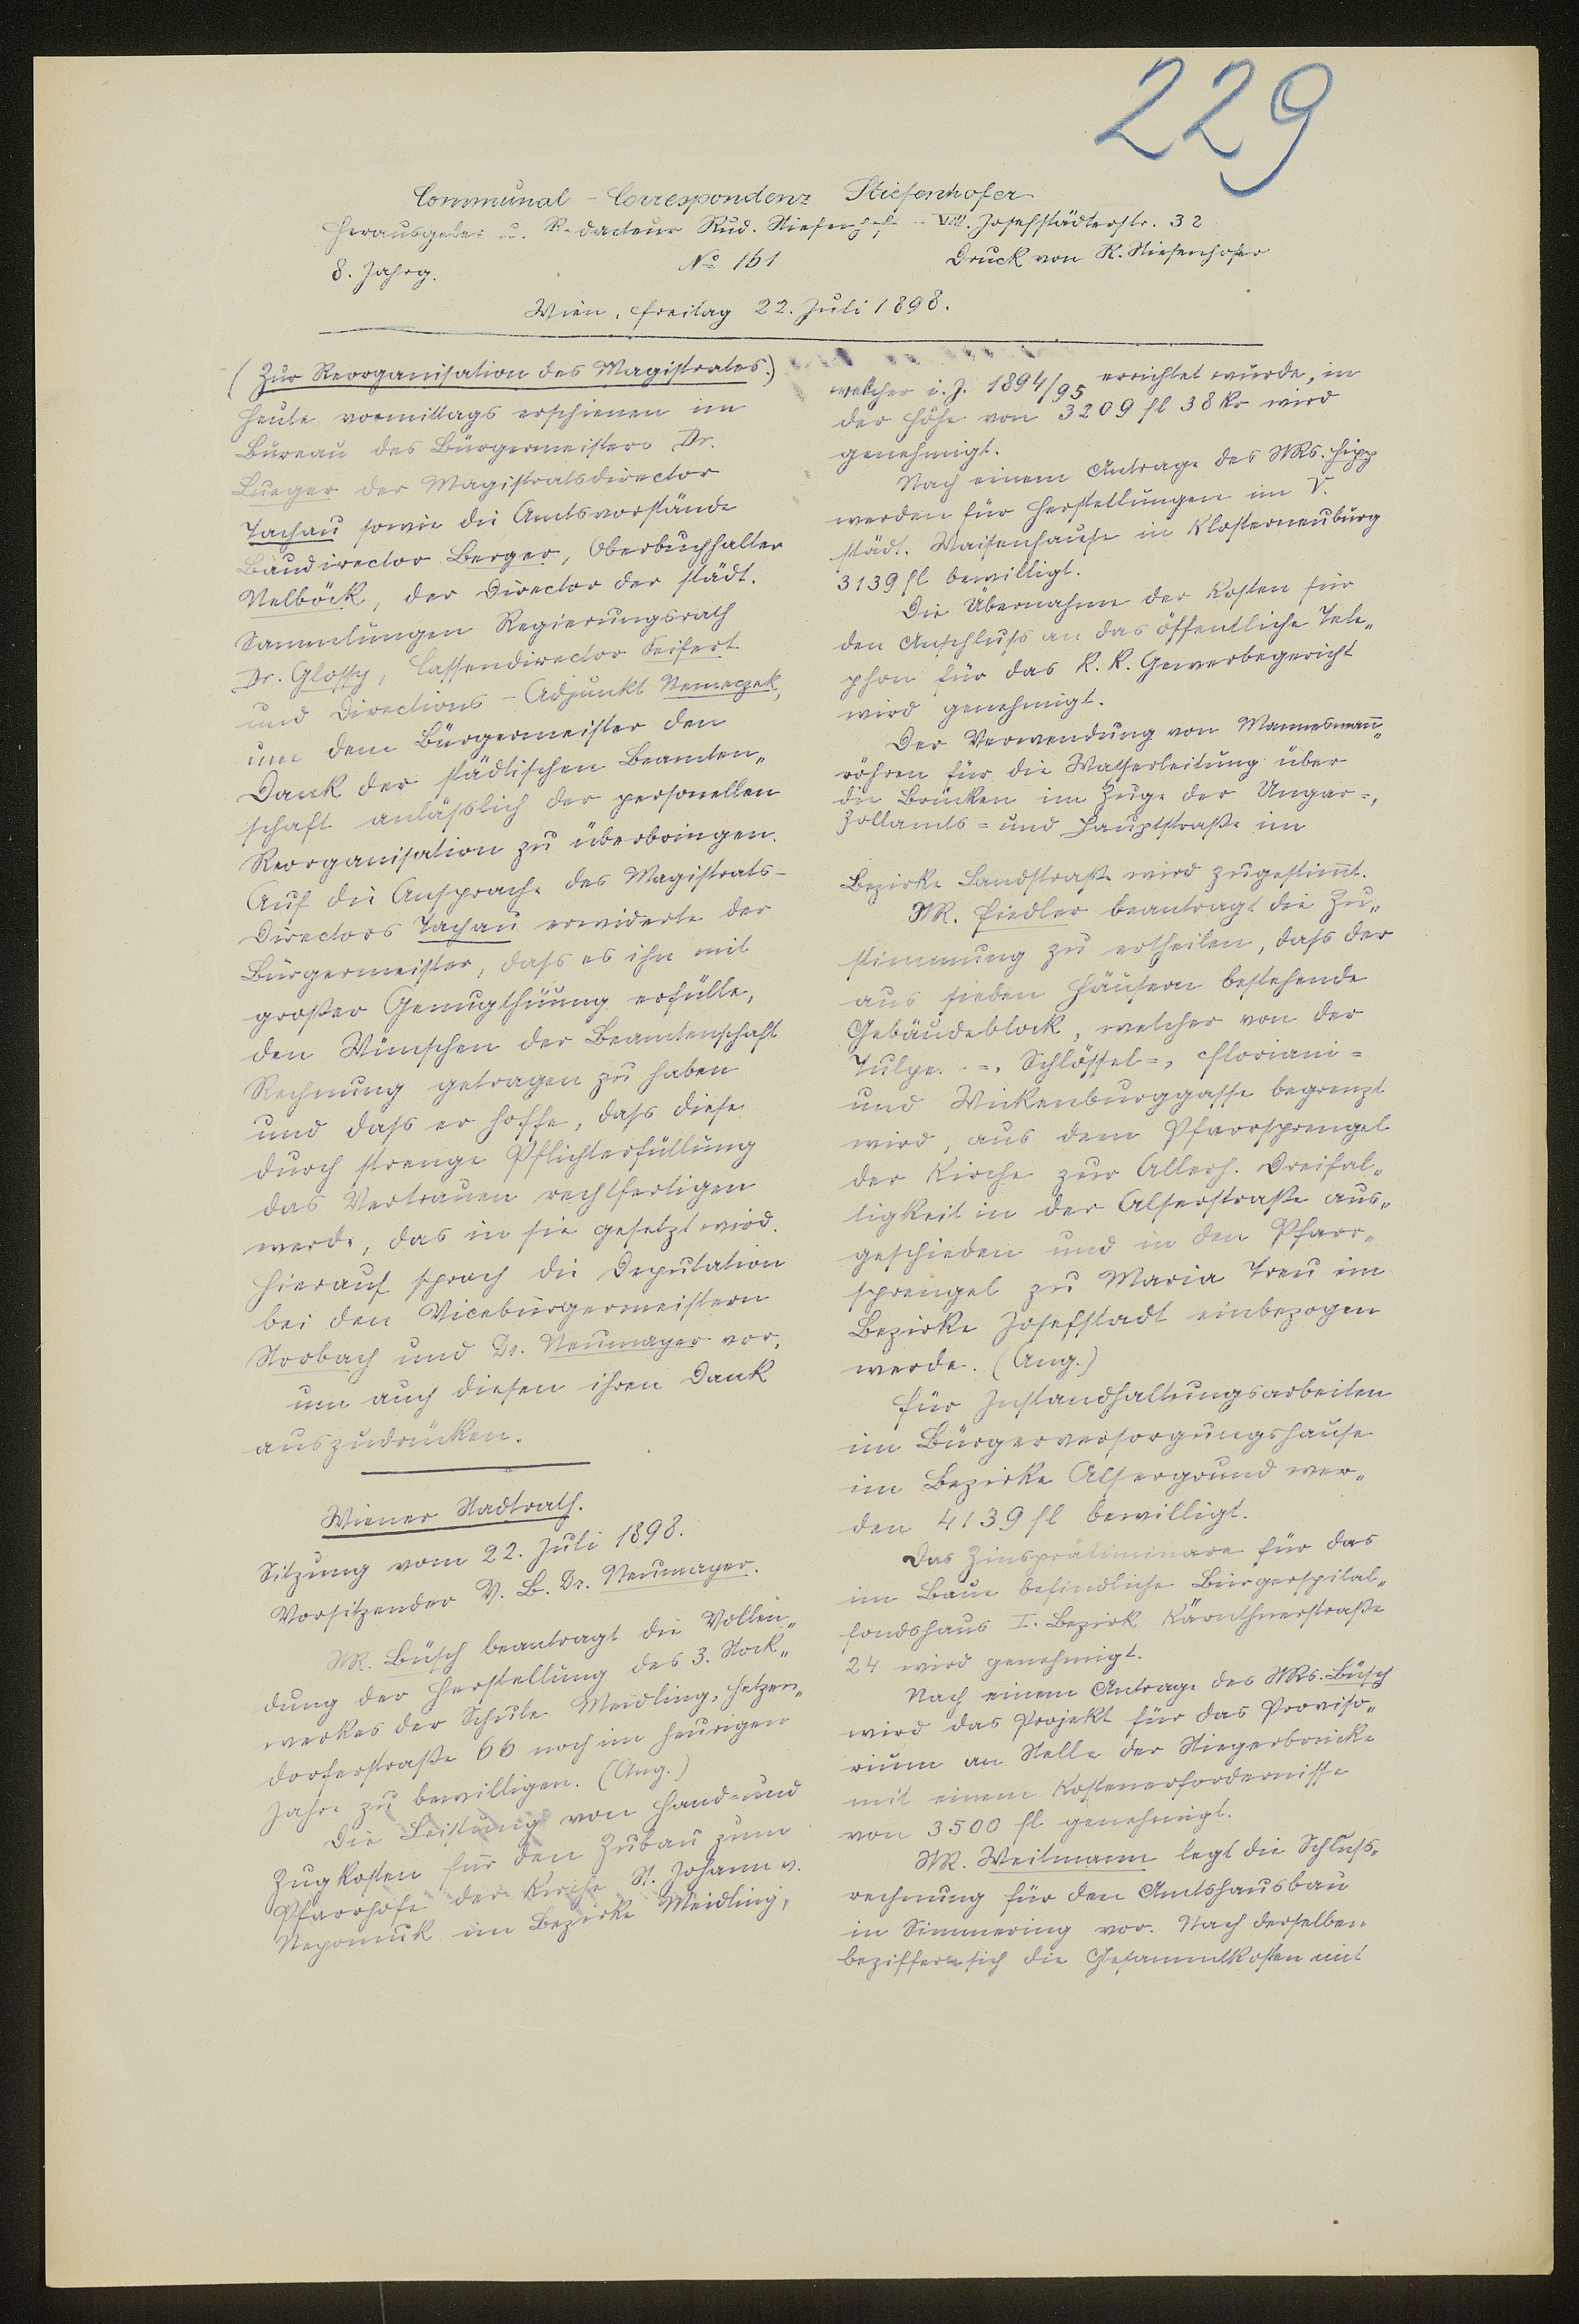 229
Communal-Correspondenz Stiefenhofer
Herausgeber u. Redacteur Rud. Stiefenhofer VIII. Josefstädterstr. 32
8. Jahrg. No 161 Druck von R. Stiefenhofer
Wien, Freitag 22. Juli 1898.
(Zur Reorganisation des Magistrates.)
Heute vormittags erschienen im
Bureau des Bürgermeisters Dr.
Lueger der Magistratsdirector
Tachau sowie die Amtsvorstände
Baudirector Berger, Oberbuchhalter
Nelböck, der Director der städt.
Sammlungen Regierungsrath
Dr. Glossy, Cassendirector Seifert
und Directions-Adjunkt Nemeczek,
um dem Bürgermeister den
Dank der städtischen Beamten„
schaft anläßlich der personellen
Reorganisation zu überbringen.
Auf die Ansprache des Magistrats-
Directors Tachau erwiderte der
Bürgermeister, dass es ihn mit
großer Genugthuung erfülle,
den Wünschen der Beamtenschaft
Rechnung getragen zu haben
und dass er hoffe, dass diese
durch strenge Pflichterfüllung
das Vertrauen rechtfertigen
werde, das in sie gesetzt wird.
Hierauf sprach die Deputation
bei den Vicebürgermeistern
Strobach und Dr. Neumayer vor,
um auch diesen ihren Dank
auszudrücken.
Wiener Stadtrath.
Sitzung vom 22. Juli 1898.
Vorsitzender V. B. Dr. Neumayer.
StR. Büsch beantragt die Vollen„
dung der Herstellung des 3. Stock„
werkes der Schule Meidling, Hetzen„
dorferstraße 66 noch im heurigen
Jahre zu bewilligen. (Ang.)
Die Leistung von Hand- und
Zugkosten für den Zubau zum
Pfarrhofe der Kirche St. Johann v.
Nepomuk im Bezirke Meidling,
welcher i. J. 1894/95 errichtet wurde, in
der Höhe von 3209 fl 38 kr wird
genehmigt.
Nach einem Antrage des StRs. Hipp
werden für Herstellungen im V.
städt. Waisenhause in Klosterneuburg
3139 fl bewilligt.
Die Übernahme der Kosten für
den Anschluss an das öffentliche Tele„
phon für das k. k. Gewerbegericht
wird genehmigt.
Der Verwendung von Mannesmann„
röhren für die Wasserleitung über
die Brücken im Zuge der Ungar=,
Zollamts= und Hauptstraße im
Bezirke Landstraße wird zugestimt.
StR. Fiedler beantragt die Zu„
stimmung zu ertheilen, dass der
aus sieben Häusern bestehende
Gebäudeblock, welcher von der
Tulpen=, Schlössel=, Floriani=
und Wickenburggasse begrenzt
wird, aus dem Pfarrsprengel
der Kirche zur Allerh. Dreifal„
tigkeit in der Alserstraße aus„
geschieden und in den Pfarr„
sprengel zu Maria Treu im
Bezirke Josefstadt einbezogen
werde. (Ang.)
Für Instandhaltungsarbeiten
im Bürgerversorgungshause
im Bezirke Alsergrund wer„
den 4139 fl bewilligt.
Das Zinspräliminare für das
im Baue befindliche Bürgerspital„
fondshaus I. Bezirk Kärnthnerstraße
24 wird genehmigt.
Nach einem Antrage des StRs. Büsch
wird das Projekt für das Proviso„
rium an Stelle der Stiegerbrücke
mit einem Kostenerfordernisse
von 3500 fl genehmigt.
StR. Weitmann legt die Schluss„
rechnung für den Amtshausbau
in Simmering vor. Nach derselben
beziffern sich die Gesammtkosten mit